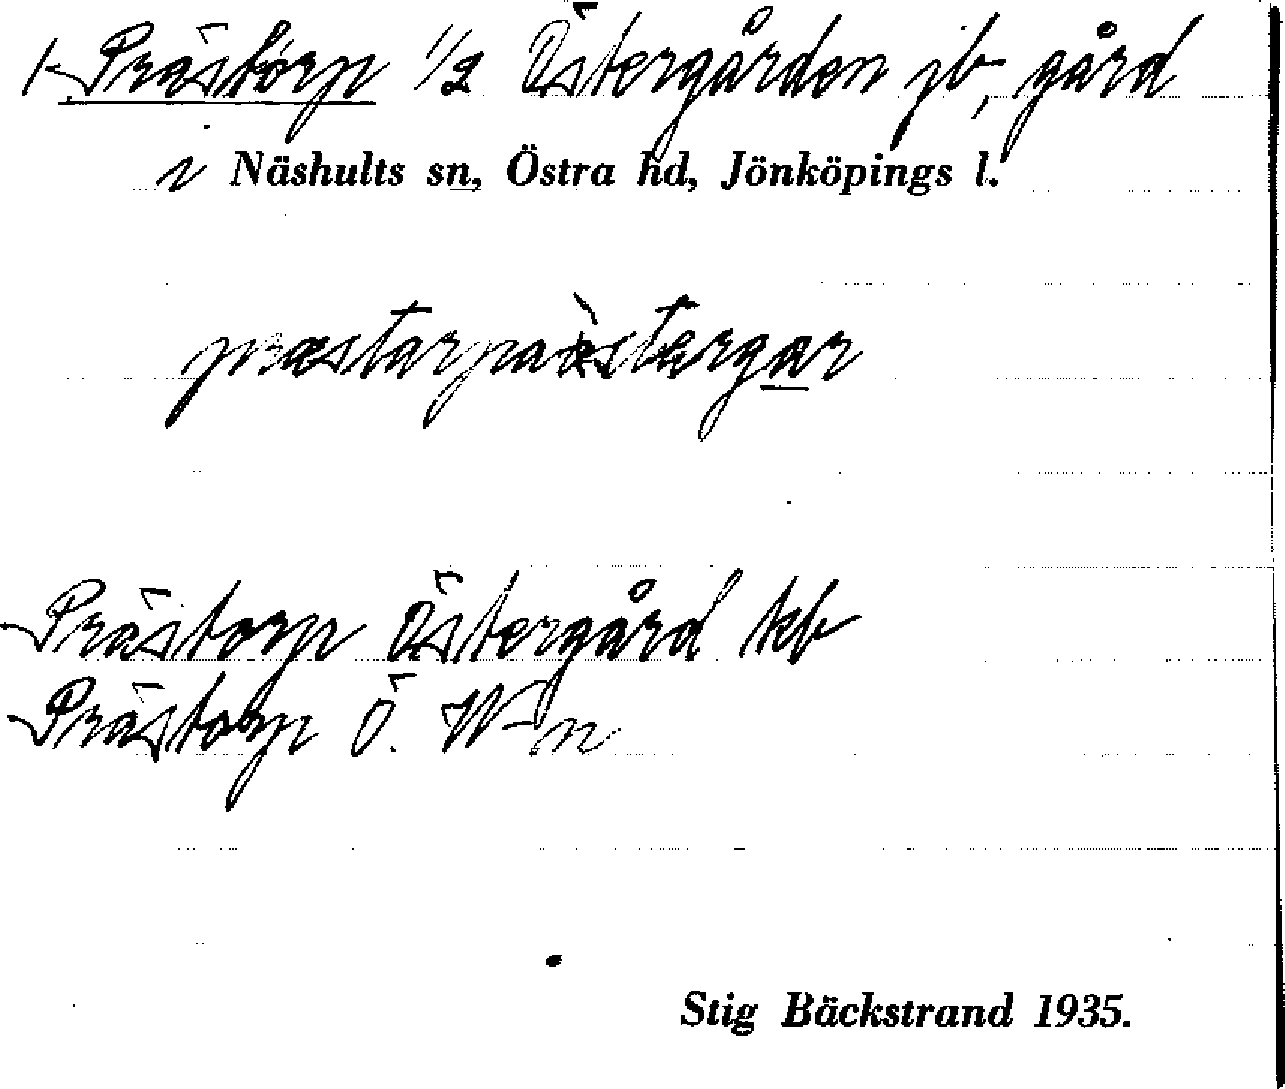 1. Prästorp 1/2 Östergården jb, gård
i Näshults sn, Östra hd, Jönköpings l.
præstarpaèstergar
Prästorp Östergård kb
Prästorp Ö.
Stig Bäckstrand 1935.